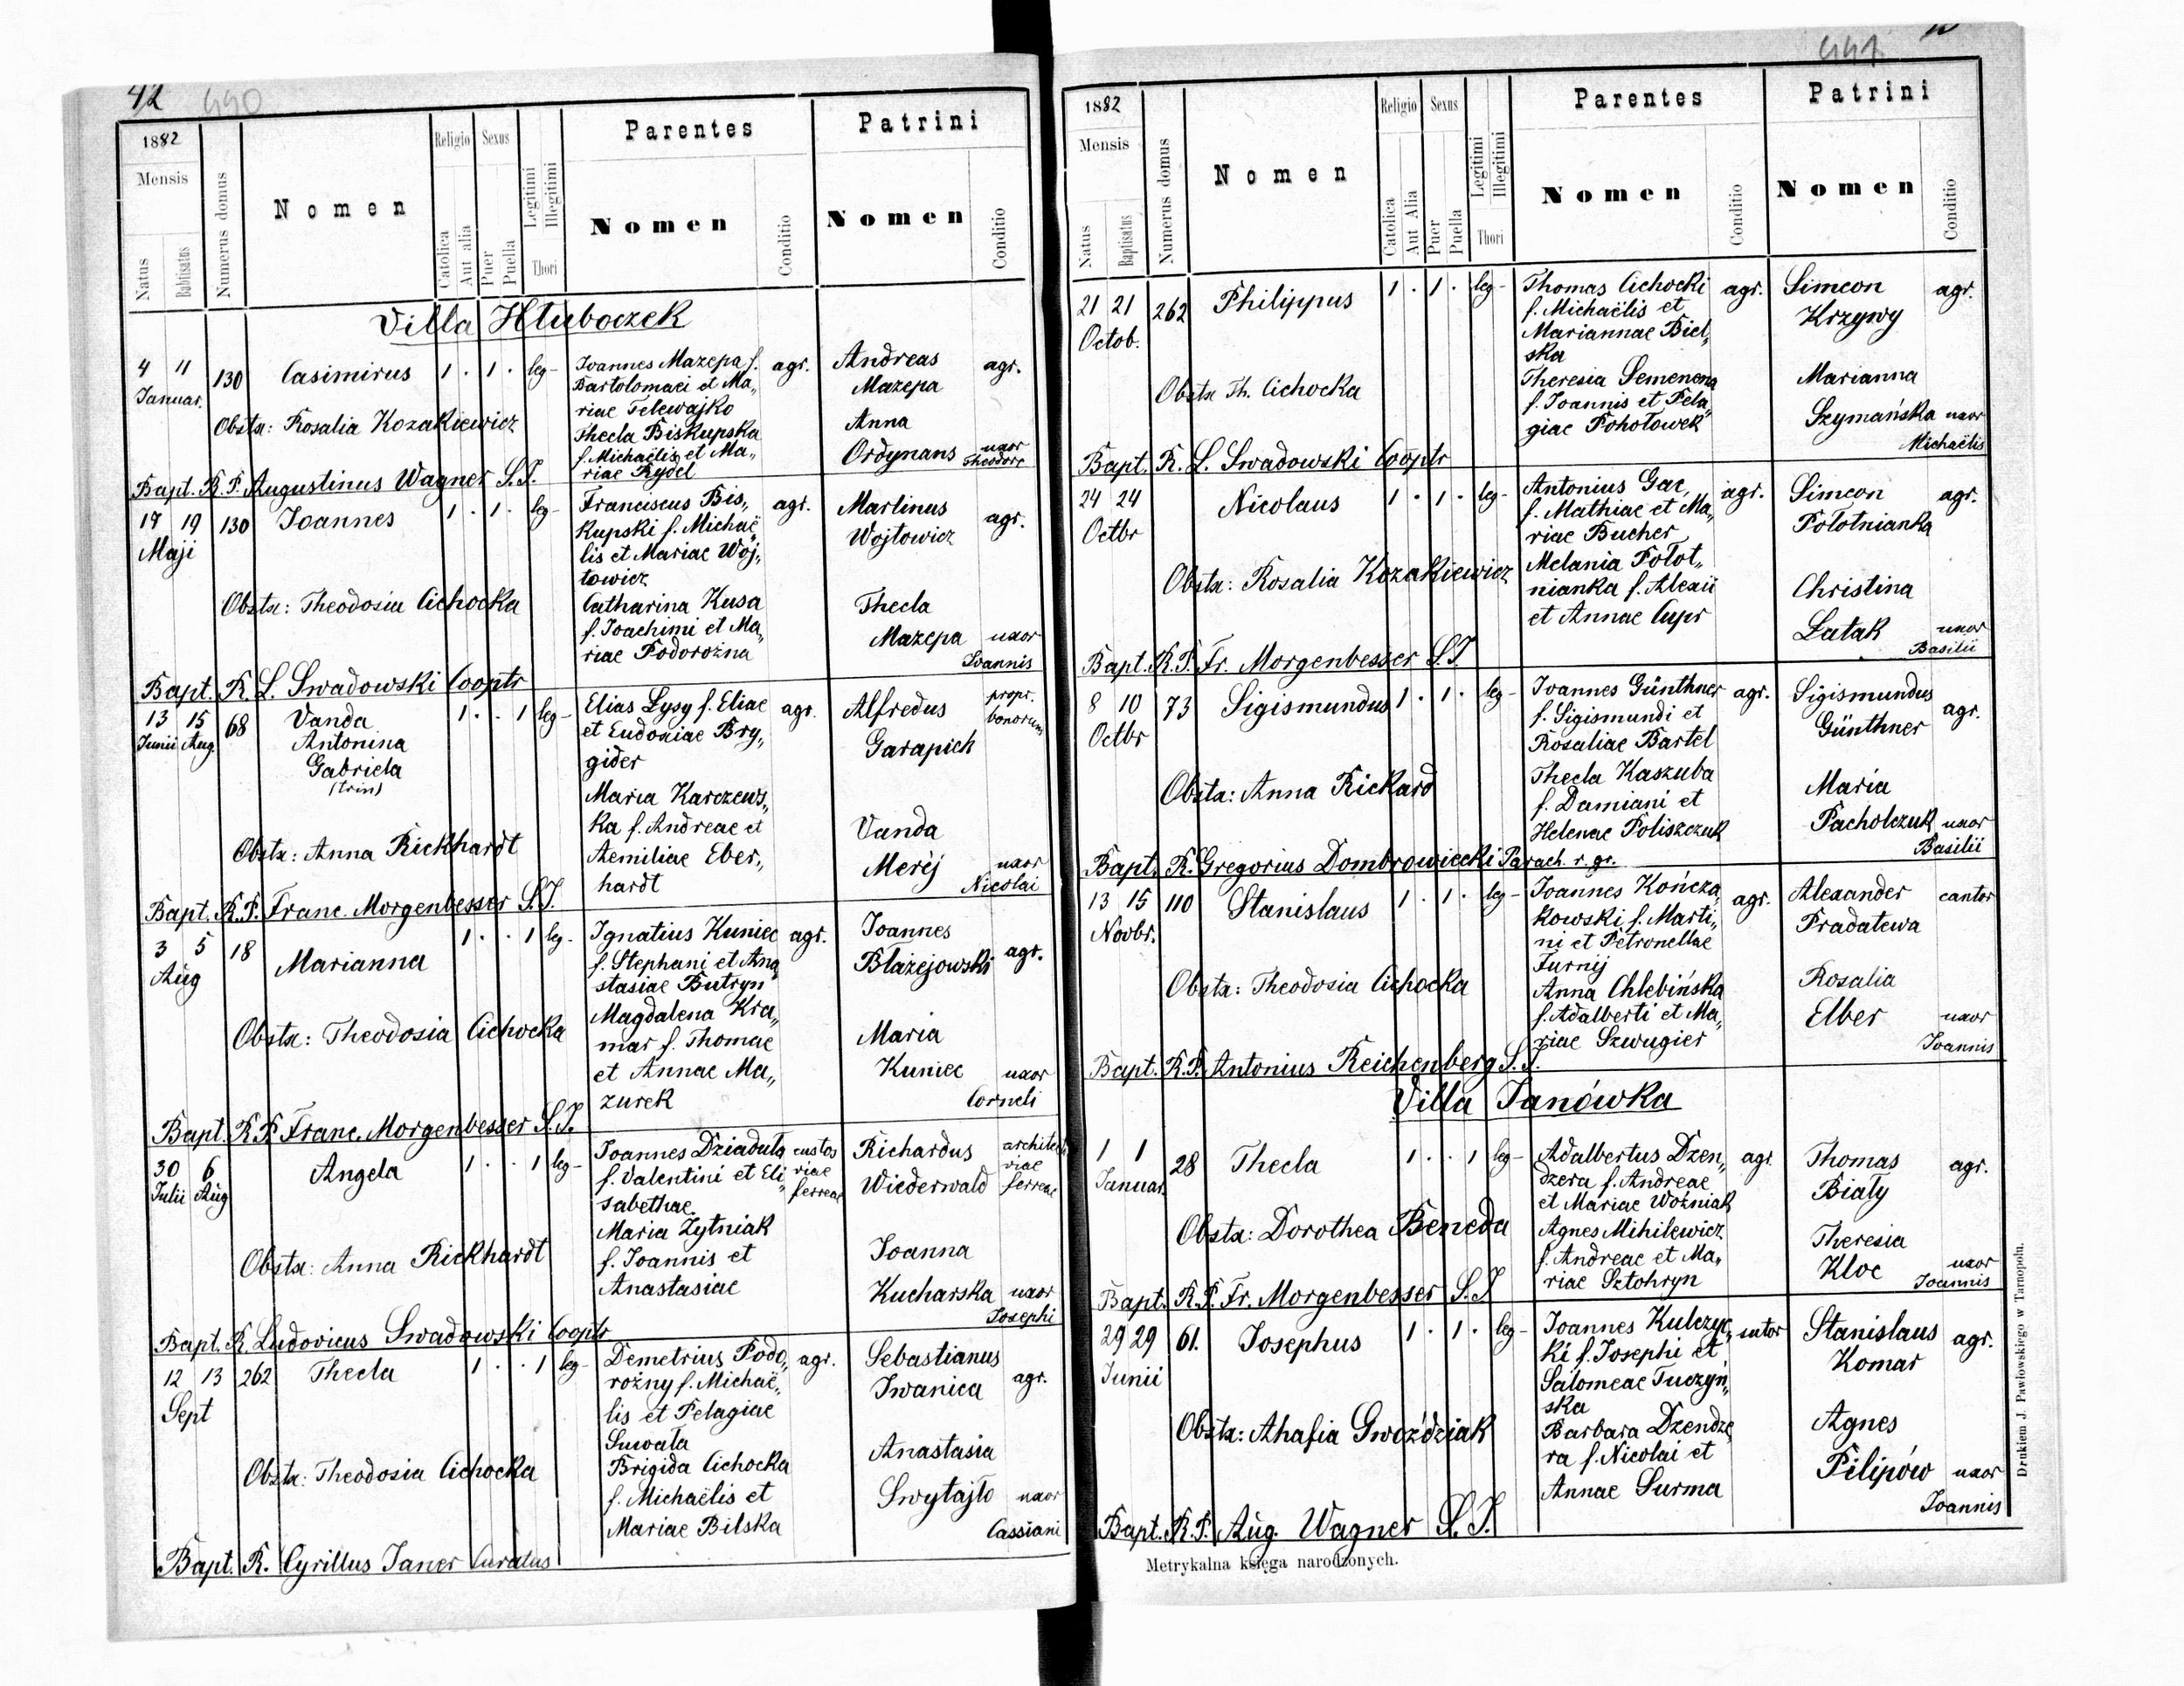 42 440
1882
Mensis
Natus
Babtisatus
Numerus domus
Nomen
Religio
Catolica
Aut alia
Sexus
Puer
Puella
Legitimi
Illegitimi
Thori
Parentes
Nomen
Conditio
Patrini
Nomen
Conditio
Villa Hłuboczek
4 11 130 Casimirus 1 . 1 . leg- Joannes Mazepa f. agr. Andreas agr.
Januar. Bartolomaei et Ma„ Mazepa
riae Telewajko
Obstx: Rosalia Kozakiewicz Thecla Biskupska Anna
f. Michaëlis et Ma„ Ordynans uxor
riae Rydel Theodore
Bapt. R. P. Augustinus Wagner S.J.
17 19 130 Joannes 1 . 1 . leg- Franciscus Bis„ agr. Martinus agr.
Maji kupski f. Michaë„ Wojtowicz
lis et Mariae Woj„
towicz
Obstx: Theodosia Cichocka Catharina Kusa Thecla
f. Joachimi et Ma„ Mazepa uxor
riae Podorożna Joannis
Bapt. R. L. Swadowski Cooptr
13 15 68 Vanda 1 . . 1 leg- Elias Łysy f. Eliae agr. Alfredus propr.
Junii Aug. Antonina et Eudoxiae Bry„ Garapich bonorum
Gabriela gider
(trin) Maria Karczews„
ka f. Andreae et Vanda
Obstx: Anna Rickhardt Aemiliae Eber„ Merėj uxor
hardt Nicolai
Bapt. R.P. Franc. Morgenbesser S.J.
3 5 18 Marianna 1 . . 1 leg- Ignatius Kuniec agr. Joannes agr.
Aug f. Stephani et Ana„ Błażejowski
stasiae Butryn
Magdalena Kra„
Obstx: Theodosia Cichocka mar f. Thomae Maria
et Annae Ma„ Kuniec uxor
zurek Corneli
Bapt. R.P. Franc. Morgenbesser S.J.
30 6 Angela 1 . . 1 leg- Joannes Dziaduła custos Richardus architect
Julii Aug f. Valentini et Eli„ viae Wiederwald viae
sabethae ferreae ferreae
Maria Żytniak
Obstx: Anna Rickhardt f. Joannis et Joanna
Anastasiae Kucharska uxor
Josephi
Bapt. R. Ludovicus Swadowski Cooptr
12 13 262 Thecla 1 . . 1 leg- Demetrius Podo„ agr. Sebastianus agr.
Sept rożny f. Michaë„ Iwanica
lis et Pelagiae
Suwała
Obstx: Theodosia Cichocka Brigida Cichocka Anastasia
f. Michaëlis et Swytajło uxor
Mariae Bilska Cassiani
Bapt. R. Cyrillus Janer Curatus
441
1882
Mensis
Natus
Baptisatus
Numerus domus
Nomen
Religio
Catolica
Aut Alia
Sexus
Puer
Puella
Legitimi
Illegitimi
Thori
Parentes
Nomen
Conditio
Patrini
Nomen
Conditio
21 21 262 Philippus 1 . 1 . leg- Thomas Cichocki agr. Simeon agr.
Octob. f. Michaëlis et Krzywy
Mariannae Biel„
ska
Obstx Th. Cichocka Theresia Semenena Marianna
f. Joannis et Pela„ Szymańska uxor
giae Pohołowek Michaëlis
Bapt. R. L. Swadowski Cooptr
24 24 Nicolaus 1 . 1 . leg- Antonius Gac, agr. Simeon agr.
Octbr f. Mathiae et Ma„ Połotnianka
riae Bucher
Obstx: Rosalia Kozakiewicz Melania Połot„ Christina
nianka f. Alexii Łatak uxor
et Annae Cupr Basilii
Bapt. R.P. Fr. Morgenbesser S.J
8 10 73 Sigismundus 1 . 1 . leg- Joannes Günthner agr. Sigismundus agr.
Octbr f. Sigismundi et Günthner
Rosaliae Bartel
Obstx: Anna Rickard Thecla Kaszuba Maria
f. Damiani et Pacholczuk uxor
Helenae Poliszczuk Basilii
Bapt. R. Gregorius Dombrowiecki Parach. r. gr.
13 15 110 Stanislaus 1 . 1 . leg- Joannes Kończa„ agr. Alexander cantor
Novbr. kowski f. Marti„ Pradatewa
ni et Petronellae
Furnij
Obstx: Theodosia Cichocka Anna Chlebińska Rosalia
f. Adalberti et Ma„ Elber uxor
riae Szwugier Joannis
Bapt. R.P. Antonius Reichenberg S.J.
Villa Janówka
1 1 28 Thecla 1 . . 1 leg- Adalbertus Dzen„ agr. Thomas agr.
Januar. dzera f. Andreae Biały
et Mariae Woźniak
Obstx: Dorothea Beneda Agnes Mihilewicz Theresia
f. Andreae et Ma„ Kloc uxor
riae Sztohryn Joannis
Bapt. R.P. Fr. Morgenbesser S.J
29 29 61. Josephus 1 . 1 . leg- Joannes Kulczyc„ sutor Stanislaus agr.
Junii ki f. Josephi et Komar
Salomeae Tuczyń„
ska
Obstx: Ahafia Gwoździak Barbara Dzendze„ Agnes
ra f. Nicolai et Pilipów uxor
Annae Surma Joannis
Bapt. R.P. Aug. Wagner S.J.
Metrykalna księga narodzonych.
Drukiem J. Pawłowskiego w Tarnopolu.